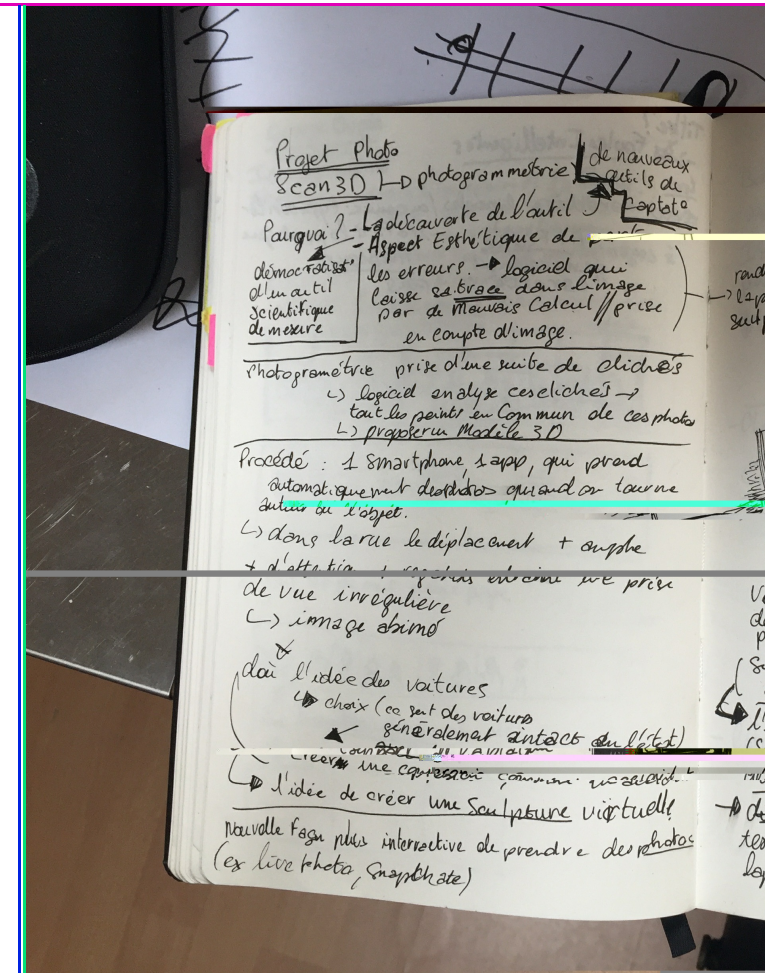 Projet Photo
Scan3D → photogrammétrie
de nouveaux
outils de
Captat°
Pourquoi ? - La découverte de l'outil
- Aspect Esthétique de
les erreurs. → logiciel qui
laisse sa trace dans l'image
par de Mauvais Calcul // prise
en compte d'image.
démocratisat°
d'un outil
scientifique
de mesure
Photogramétrie prise d'une suite de clichés
↳ logiciel analyse ces clichés →
tout les points en Commun de ces photos
↳ proposer un Modèle 3D
Procédé : 1 Smartphone, 1 app, qui prend
automatiquement des photos quand on tourne
autour de l'objet.
↳ dans la rue le déplacement +
+ d'attention + prise
de vue irrégulière
↳ image abimé
doù l'idée des voitures
↳ choix (ce sont des voitures
généralement intact
Créer une
↳ l'idée de créer une Sculpture virtuelle
Nouvelle façn plus interractive de prendre des photos
(ex live photo, Snaptchate)